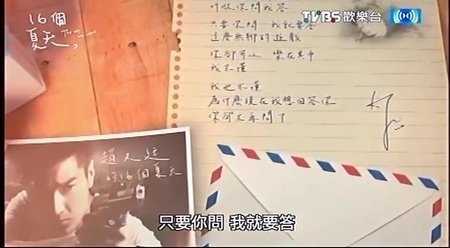 16個
夏天
TVBS歡樂台
只要你問 我就要答
這麼無聊的遊戲
你卻可以 樂在其中
我不懂
我也不懂
為什麼現在我想回答你
你卻不再問了
趙又廷
的16個夏天
只要你問 我就要答